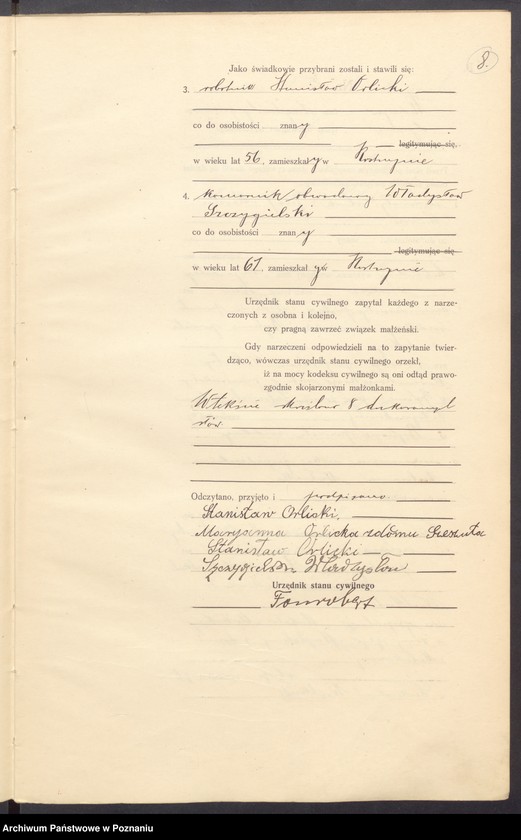 8.
Jako świadkowie przybrani zostali i stawili się:
3. robotnik Stanisław Orlicki
co do osobistości znany
legitymując się,
w wieku lat 56, zamieszkały w Kostrzynie
4. komornik obwodowy Władysław
Szczygielski
co do osobistości znany
legitymując się
w wieku lat 61, zamieszkał y w Kostrzynie
Urzędnik stanu cywilnego zapytał każdego z narze-
czonych z osobna i kolejno,
czy pragną zawrzeć związek małżeński.
Gdy narzeczeni odpowiedzieli na to zapytanie twier-
dząco, wówczas urzędnik stanu cywilnego orzekł,
iż na mocy kodeksu cywilnego są oni odtąd prawo-
zgodnie skojarzonymi małżonkami.
W tekście skreślono 8 drukowanych
słów
Odczytano, przyjęto i podpisano
Stanisław Orlicki.
Maryanna Orlicka z domu
Stanisław Orlicki
Szczygielski Władysław
Urzędnik stanu cywilnego
Archiwum Państwowe w Poznaniu